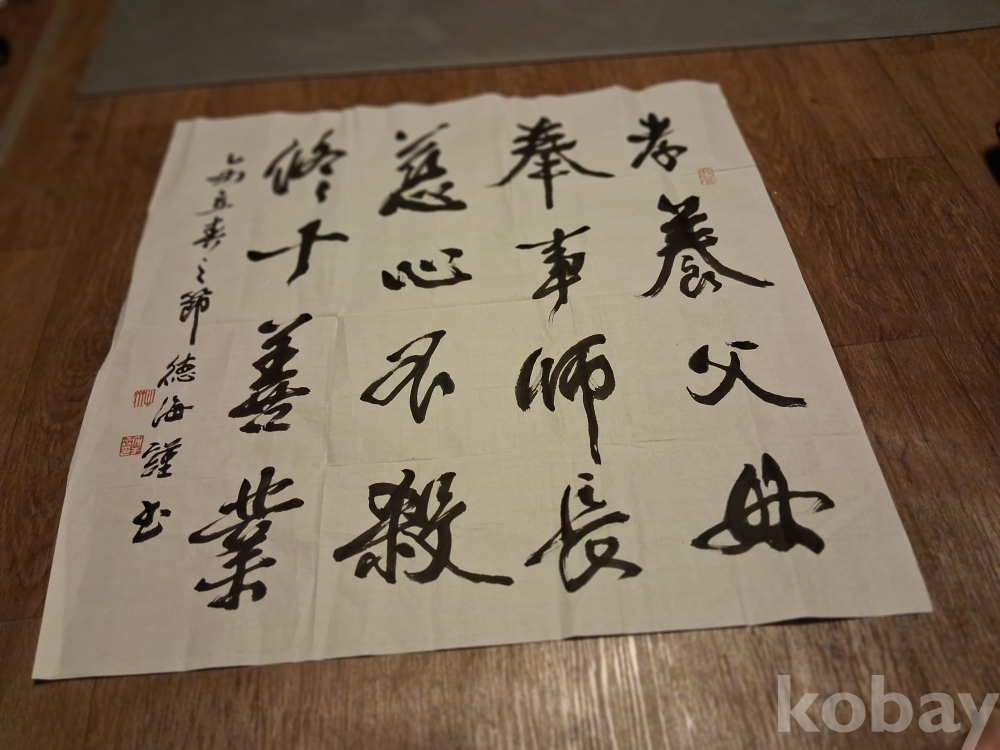 孝養父母
奉事師長
慈心不殺
修十善業
之節 德海謹書
kobay